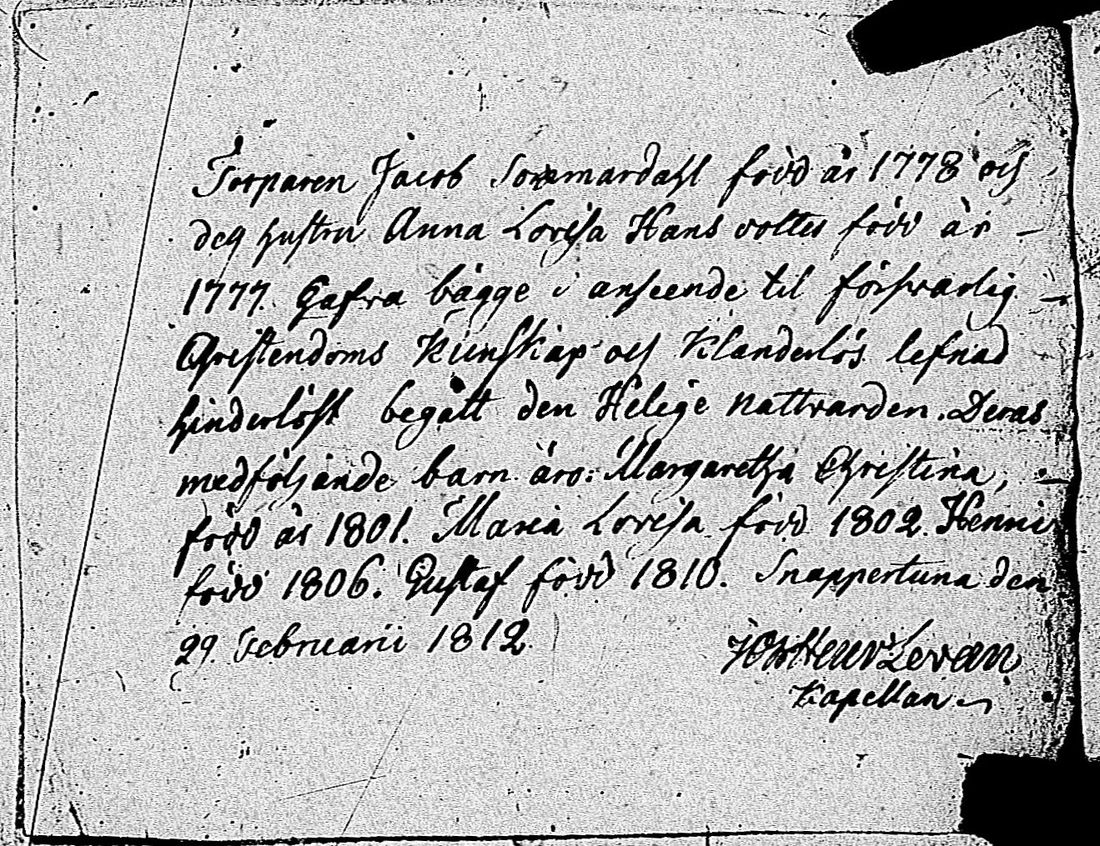 Torparen Jacob Sommardahl född år 1778 och
des hustru Anna Lovisa Hans dotter född år
1777. Hafva bägge i anseende til försvarlig
Christendoms Kunskap och Klanderlös lefnad
hinderlöst begått den Helige nattvarden. Deras
medföljande barn äro: Margaretha Christina,
född år 1801. Maria Lovisa född 1802. Henric
född 1806. Gustaf född 1810. Snappertuna den
29. Februarii 1812.
Levan
Kapellan